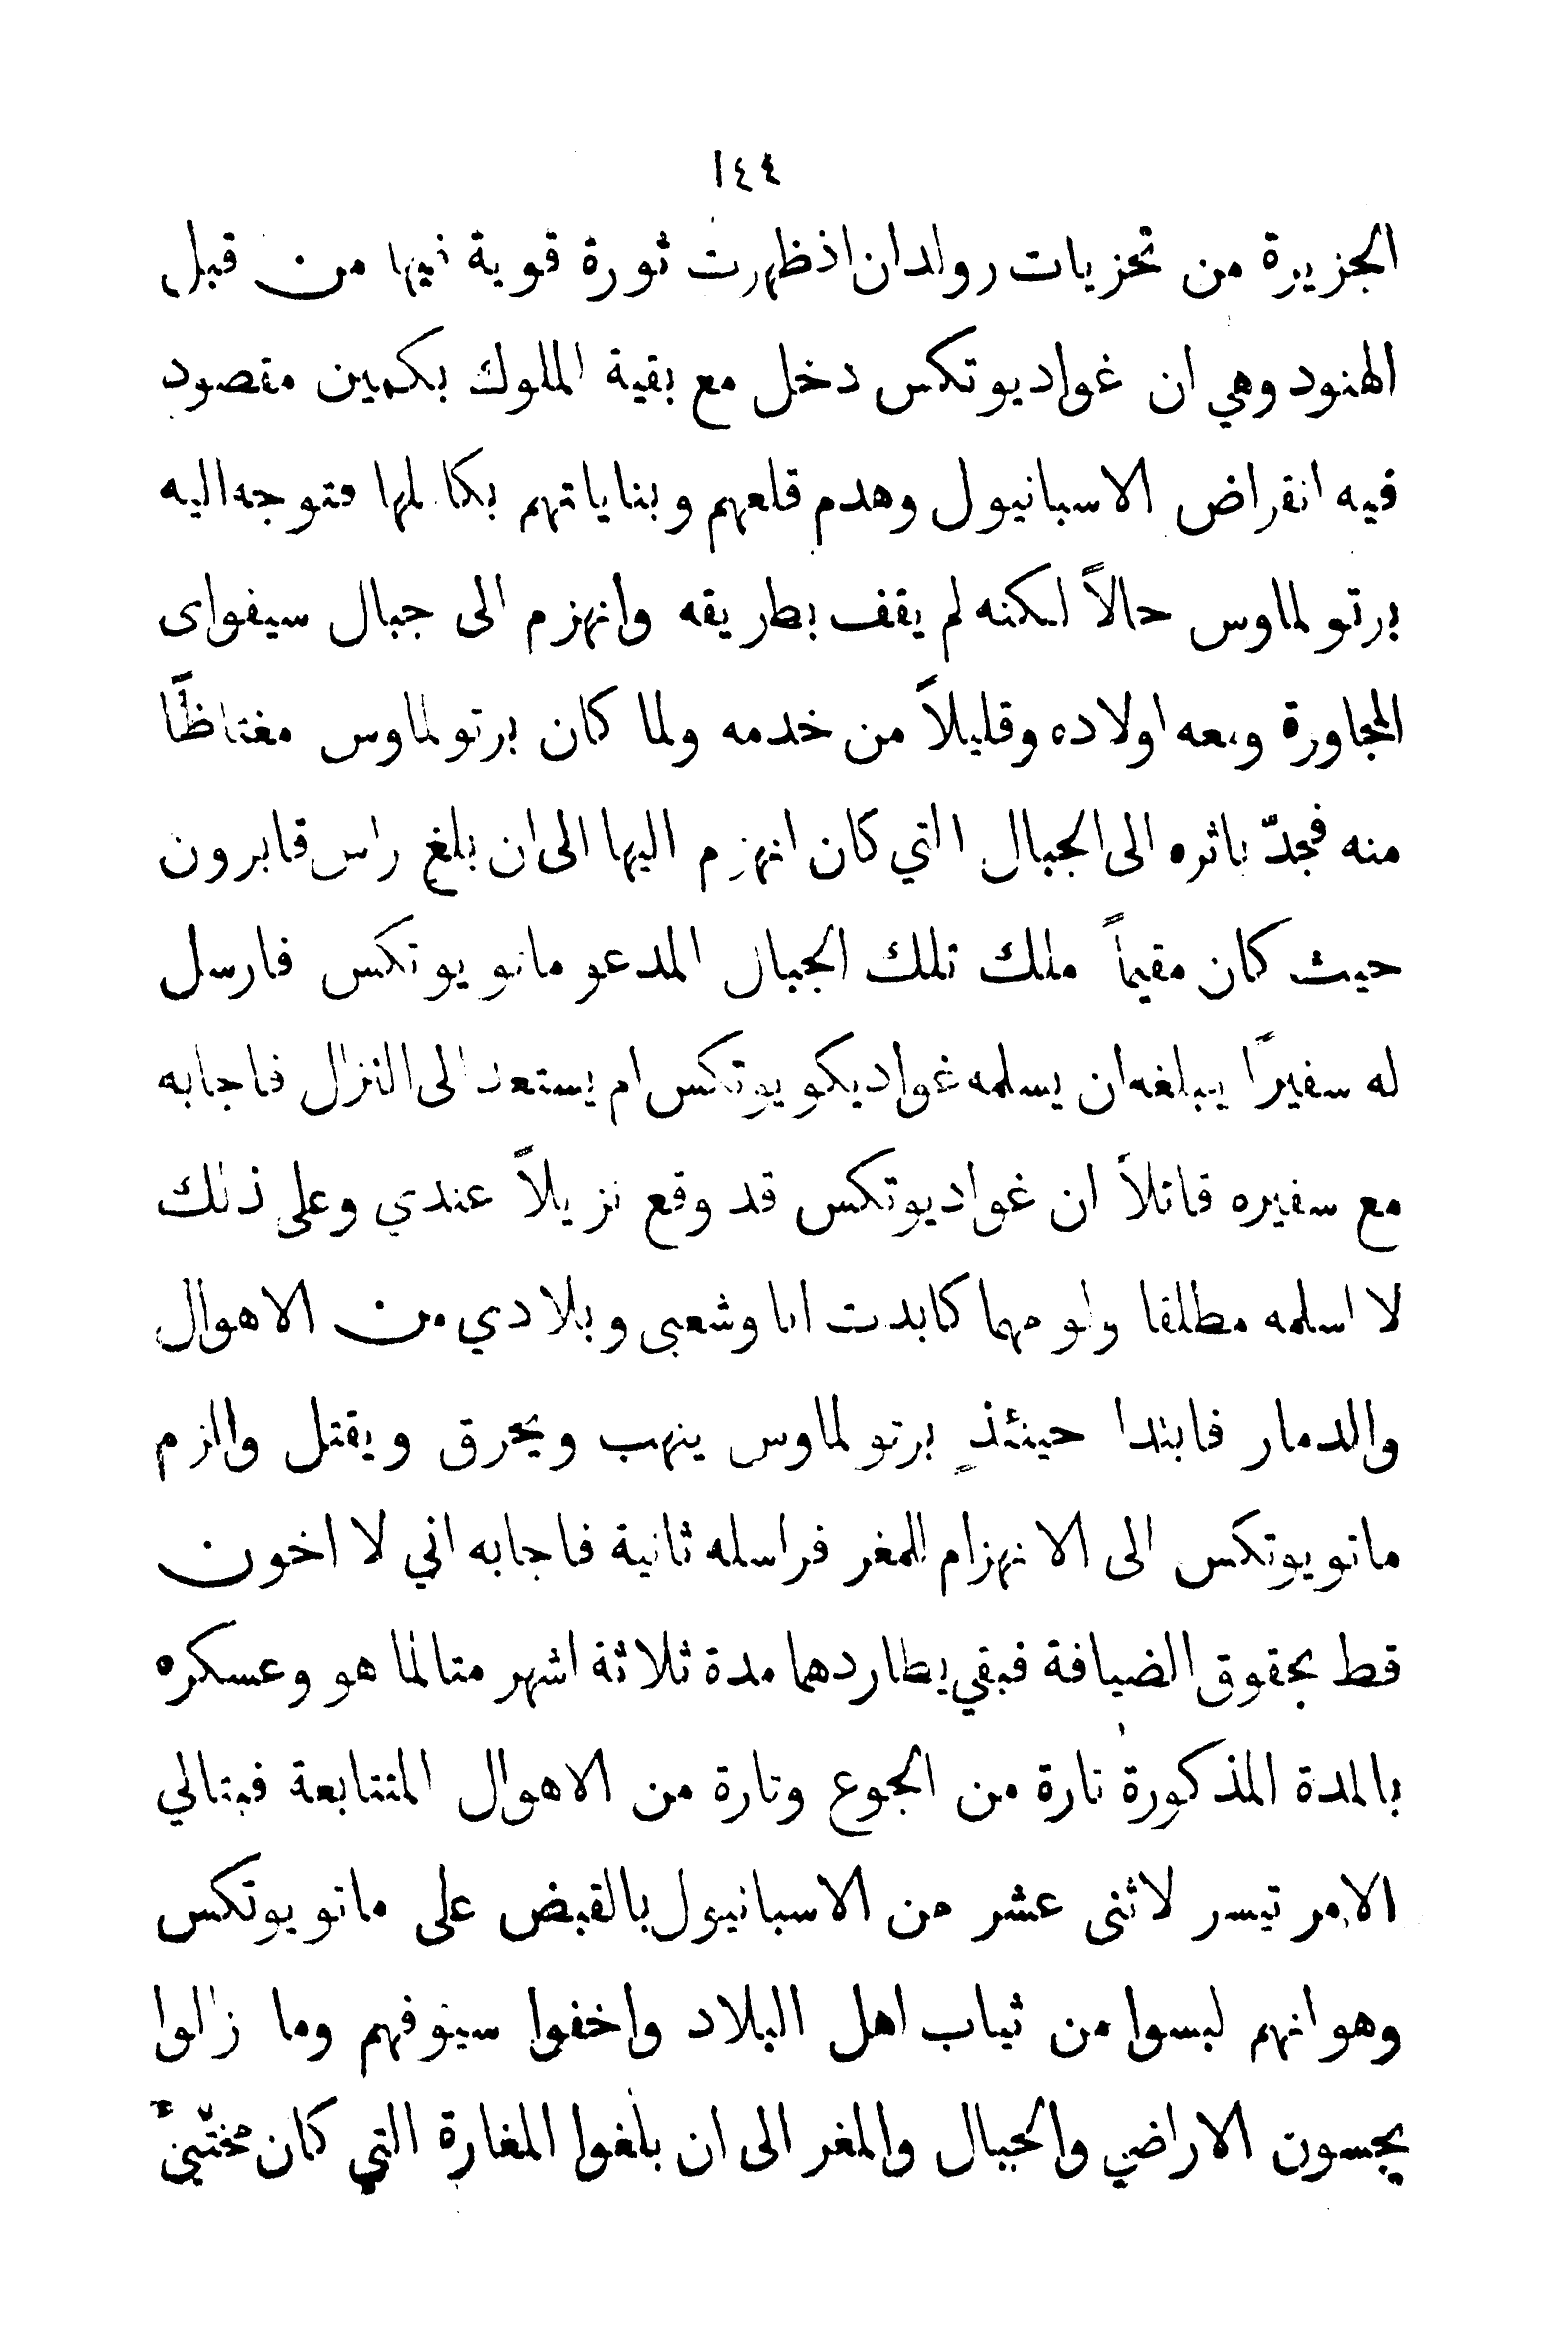 ١٤٤
الجزيرة من تحزبات رولدان اذ ظهرت ثورة قوية فيها من قبل
الهنود وهي ان غواديوتكس دخل مع بقية الملوك بكمين مقصود
فيه انقراض الاسبانيول وهدم قلعهم وبناياتهم بكاملها فتوجه اليه
برتولماوس حالاً لكنه لم يقف بطريقه وانهزم الى جبال سيفواى
المجاورة ومعه اولاده وقليلاً من خدمه ولما كان برتولماوس مغتاظًا
منه فجدّ باثره الى الجبال التي كان انهزم اليها الى ان بلغ راس قابرون
حيث كان مقيماً ملك تلك الجبال المدعو مانويوتكس فارسل
له سفيرًا يبلغه ان يسلمه غواديكويوتكس ام يستعد الى النزال فاجابه
مع سفيره قائلاً ان غواديوتكس قد وقع نزيلاً عندي وعلى ذلك
لا اسلمه مطلقا ولو مهما كابدت انا وشعبي وبلادي من الاهوال
والدمار فابتدا حينئذٍ برتولماوس ينهب ويحرق ويقتل والزم
مانويوتكس الى الانهزام للمغر فراسله ثانية فاجابه اني لا اخون
قط بحقوق الضيافة فبقي يطاردهما مدة ثلاثة اشهر متالما هو وعسكره
بالمدة المذكورة تارة من الجوع وتارة من الاهوال المتتابعة فبتالي
الامر تيسر لاثنى عشر من الاسبانيول بالقبض على مانويوتكس
وهو انهم لبسوا من ثياب اهل البلاد واخفوا سيوفهم وما زالوا
يجسون الاراضي والجبال والمغر الى ان بلغوا المغارة التي كان مختبئً